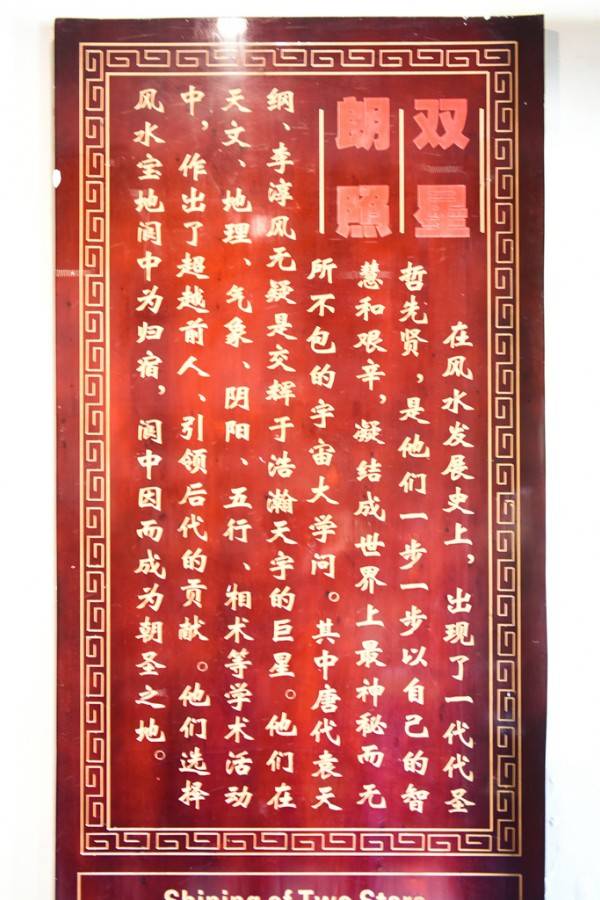 双星
朗照
在风水发展史上，出现了一代代圣
哲先贤，是他们一步一步以自己的智
慧和艰辛，凝结成世界上最神秘而无
所不包的宇宙大学问。其中唐代袁天
纲、李淳风无疑是交辉于浩瀚天宇的巨星。他们在
天文、地理、气象、阴阳、五行、相术等学术活动
中，作出了超越前人、引领后代的贡献。他们选择
风水宝地阆中为归宿，阆中因而成为朝圣之地。
Shining of Two Stars